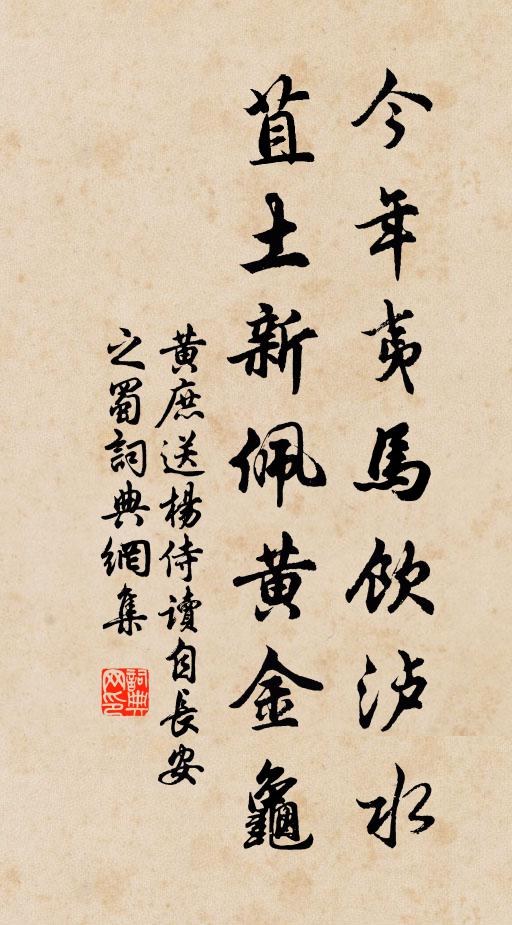 今年夷馬飲泸水
苴土新佩黃金龜
黃庶送楊侍讀自長安
之蜀詞典網集
詞典网印